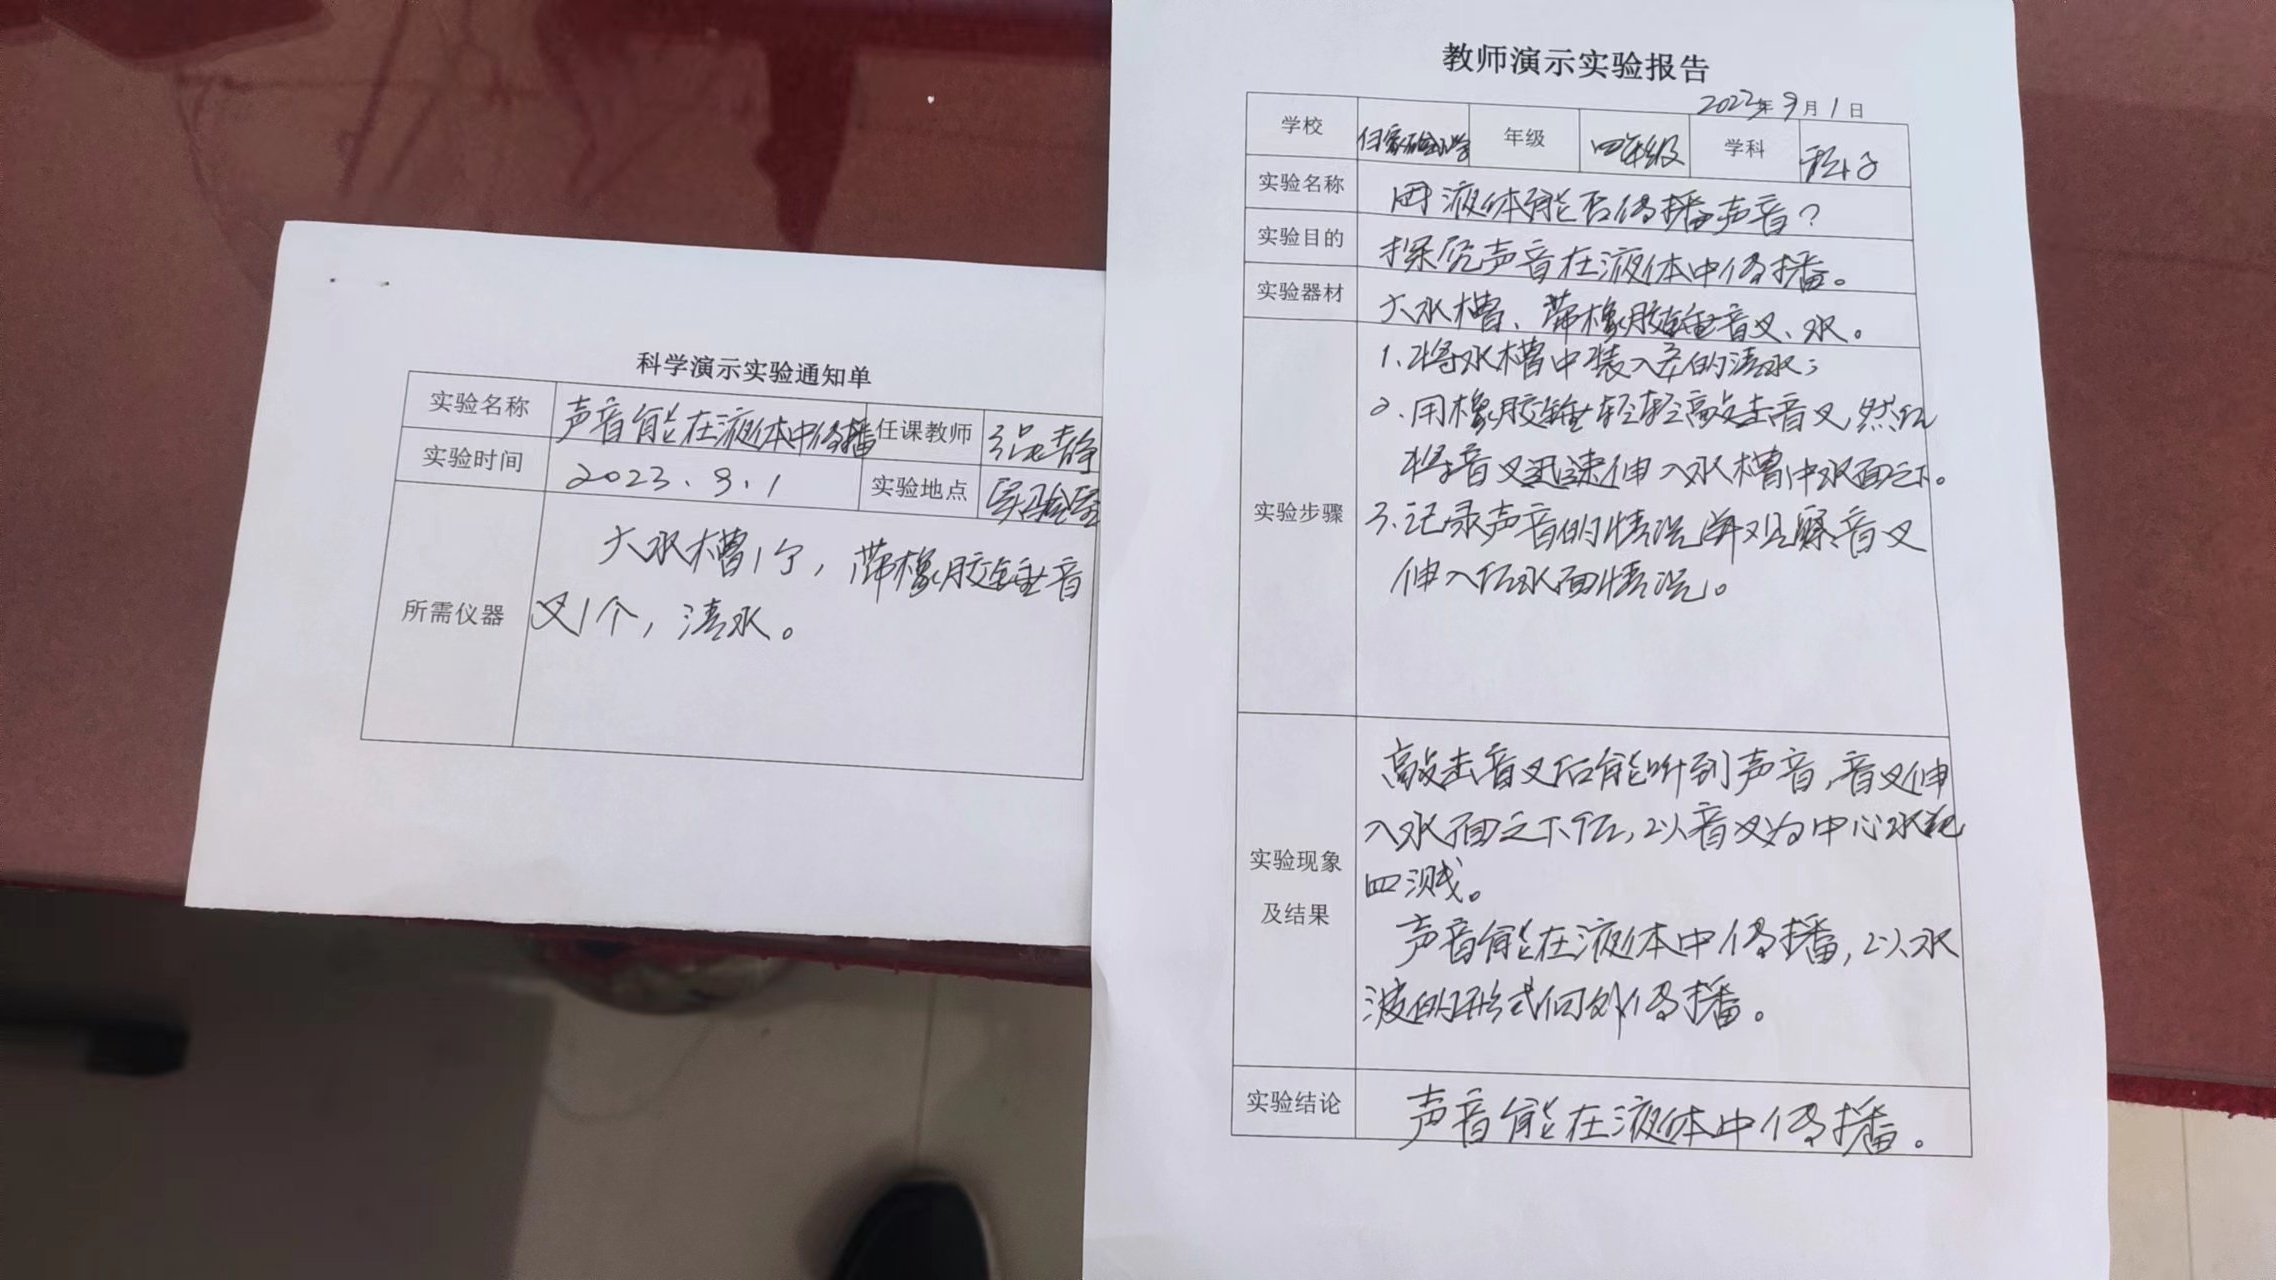 科学演示实验通知单
实验名称 声音能在液体中传播 任课教师
实验时间 2023.9.1 实验地点 实验室
所需仪器
大水槽1个，带橡胶锤音
叉1个，清水。
教师演示实验报告
2023年9月1日
学校 年级 四年级 学科 科学
实验名称 液体能否传播声音？
实验目的 探究声音在液体中传播。
实验器材 大水槽、带橡胶锤音叉、水。
实验步骤
1.将水槽中装入的清水；
2.用橡胶锤轻轻敲击音叉，然后
将音叉迅速伸入水槽中水面之下。
3.记录声音的情况并观察音叉
伸入后水面情况。
实验现象
及结果
敲击音叉后能听到声音，音叉伸
入水面之下后，以音叉为中心水花
四溅。
声音能在液体中传播，以水
波的形式向外传播。
实验结论 声音能在液体中传播。